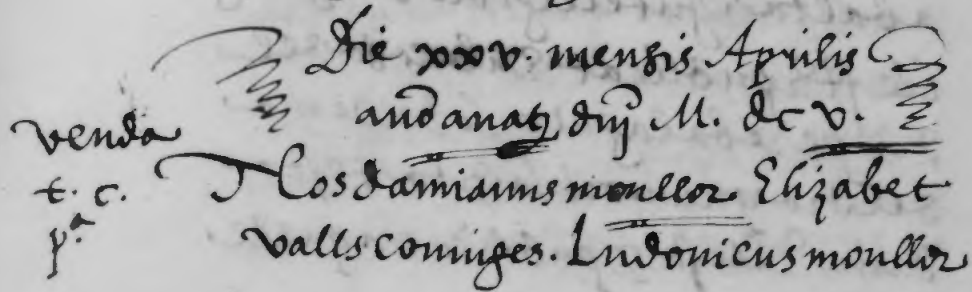 Die xxv. mensis Aprilis
anō anatȝ dnj M. dc v.
venda
t. c.
p.ª
Nos damianus moullor Elizabet
valls coniuges. Ludouicus moullor